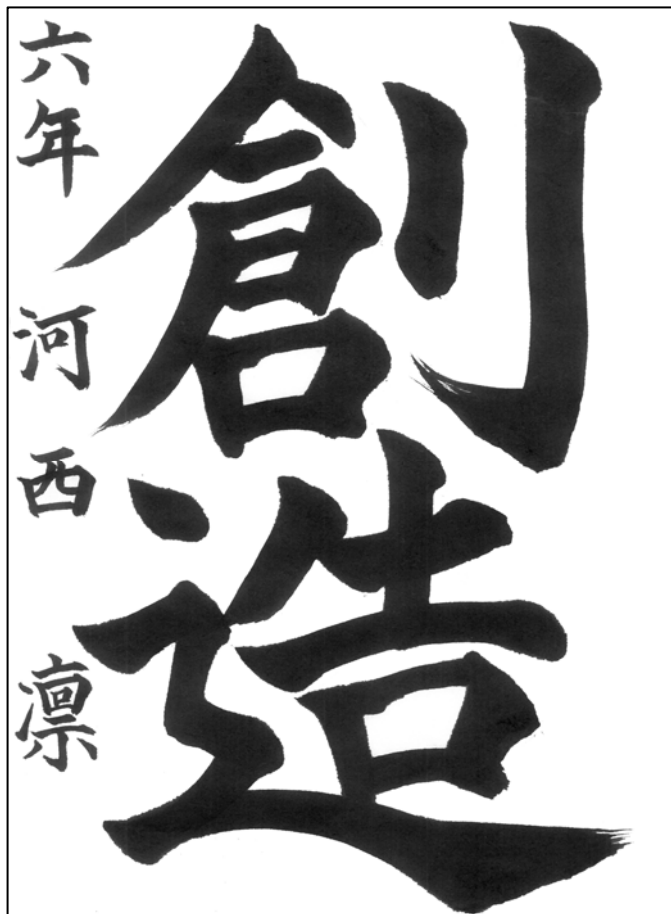 創造
六年 河西 凛